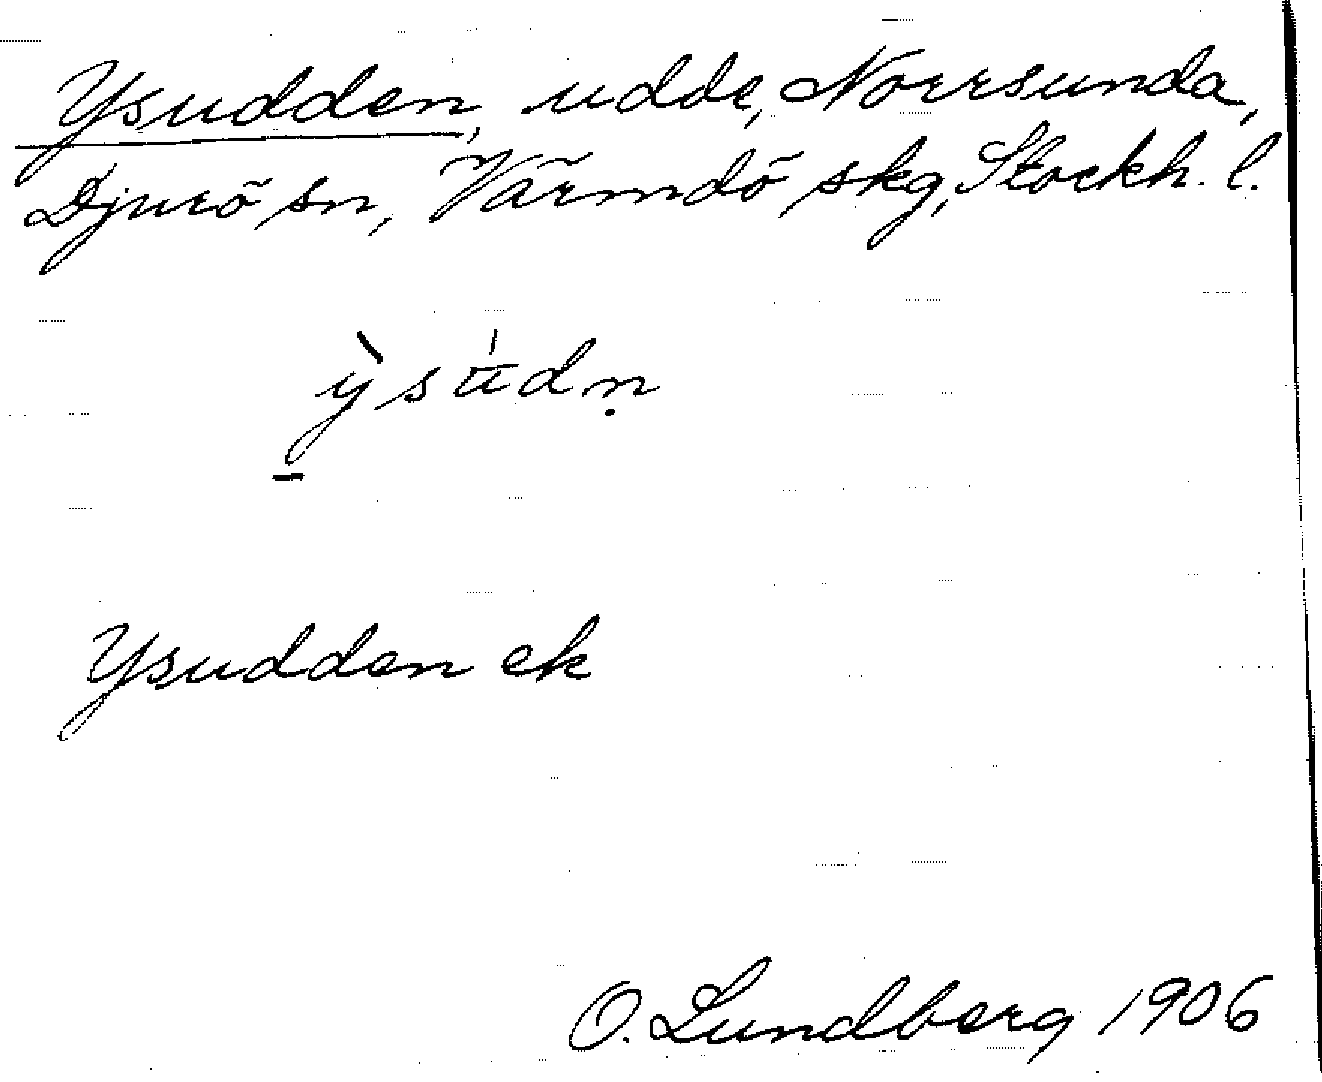 Ysudden, udde, Norrsunda,
Djurö sn, Värmdö skg, Stockh. l.
ỳsu̍dṇ
Ysudden ek
O. Lundberg 1906